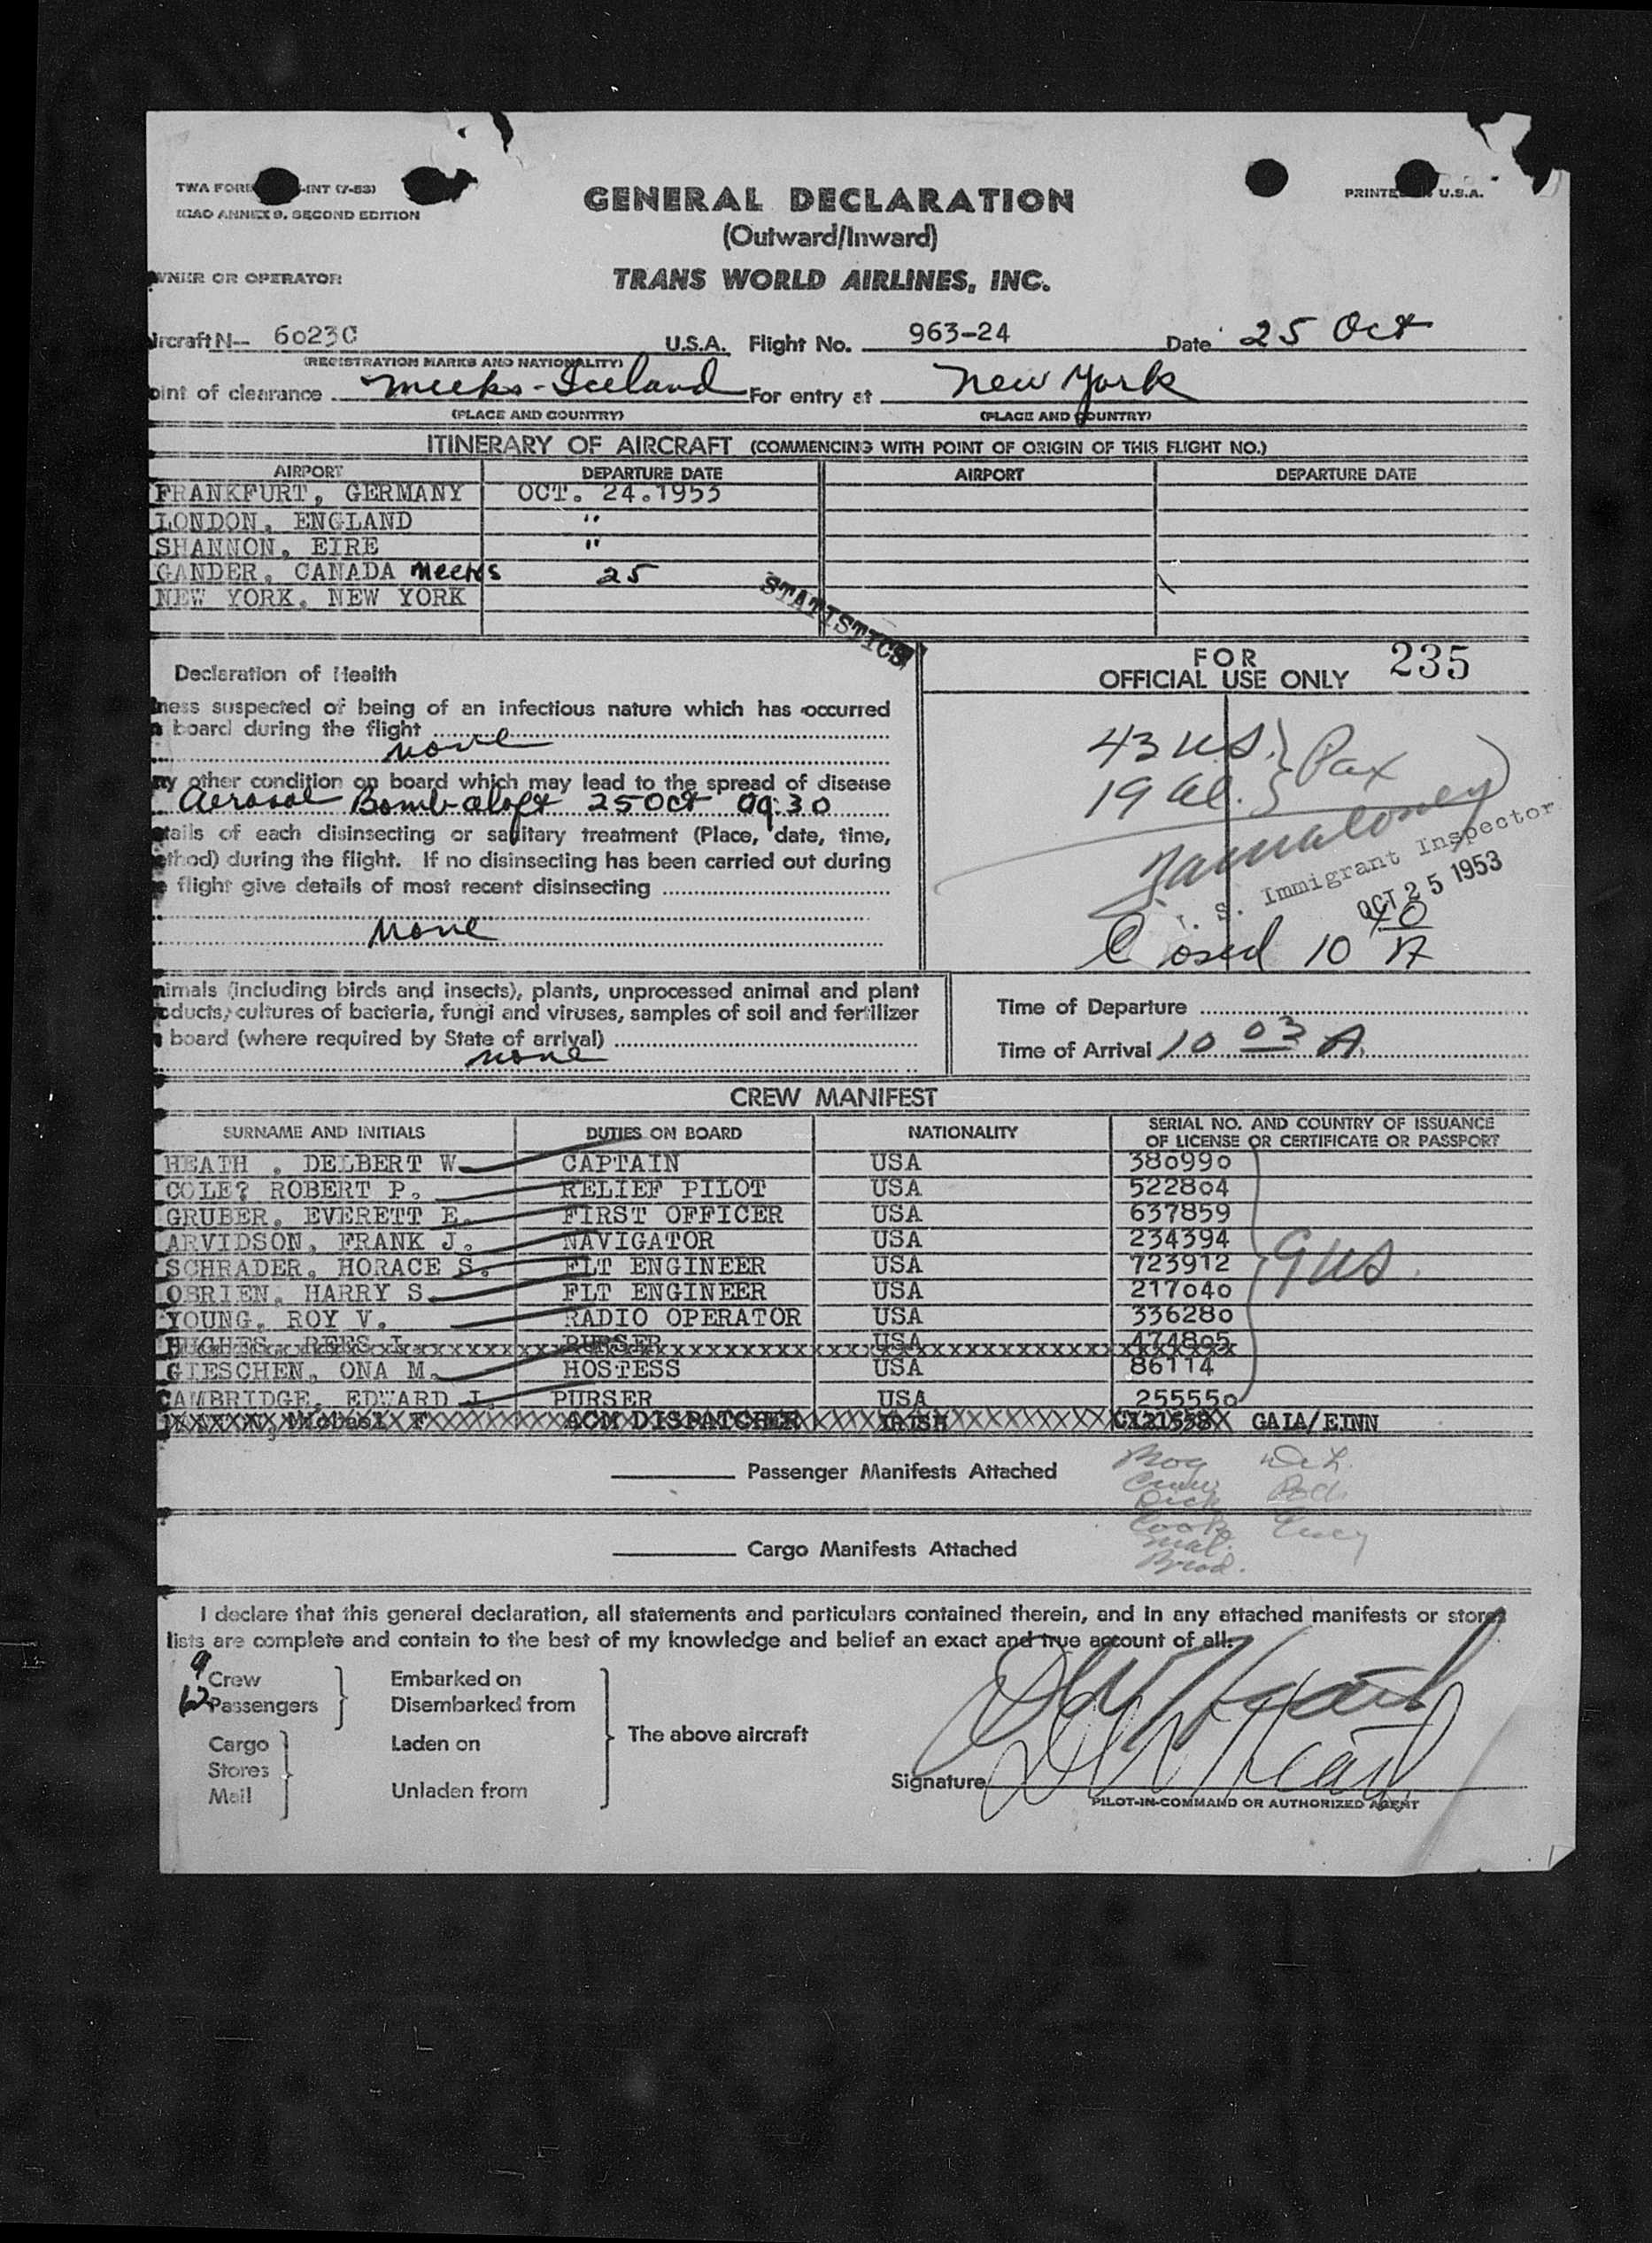 TWA FORM -INT (7-53)
ICAO ANNEX 9, SECOND EDITION
PRINTED U.S.A.
GENERAL DECLARATION
(Outward/Inward)
WNER OR OPERATOR
TRANS WORLD AIRLINES, INC.
ircraft N-- 6023C U.S.A. Flight No. 963-24 Date 25 Oct
(REGISTRATION MARKS AND NATIONALITY)
oint of clearance Meeks-Iceland For entry at New York
(PLACE AND COUNTRY) (PLACE AND COUNTRY)
ITINERARY OF AIRCRAFT (COMMENCING WITH POINT OF ORIGIN OF THIS FLIGHT NO.)
AIRPORT DEPARTURE DATE AIRPORT DEPARTURE DATE
FRANKFURT, GERMANY OCT. 24.1953
LONDON, ENGLAND "
SHANNON, EIRE "
GANDER, CANADA Meeks 25
NEW YORK, NEW YORK
STATISTICS
Declaration of Health
FOR
OFFICIAL USE ONLY 235
ness suspected of being of an infectious nature which has occurred
board during the flight
none
ny other condition on board which may lead to the spread of disease
Aerosol Bomb aloft 25 Oct 09:30
tails of each disinsecting or sanitary treatment (Place, date, time,
ethod) during the flight. If no disinsecting has been carried out during
e flight give details of most recent disinsecting
none
43 US } Pax
19 al. }
S. Immigrant Inspector
OCT 25 1953
Closed 10 40 A
nimals (including birds and insects), plants, unprocessed animal and plant
oducts, cultures of bacteria, fungi and viruses, samples of soil and fertilizer
board (where required by State of arrival)
none
Time of Departure
Time of Arrival 10 03 A.
CREW MANIFEST
SURNAME AND INITIALS DUTIES ON BOARD NATIONALITY SERIAL NO. AND COUNTRY OF ISSUANCE
OF LICENSE OR CERTIFICATE OR PASSPORT
HEATH , DELBERT W. CAPTAIN USA 380990
COLE? ROBERT P. RELIEF PILOT USA 522804
GRUBER, EVERETT E. FIRST OFFICER USA 637859
ARVIDSON, FRANK J. NAVIGATOR USA 234394
SCHRADER, HORACE S. FLT ENGINEER USA 723912
OBRIEN, HARRY S. FLT ENGINEER USA 217040
YOUNG, ROY V. RADIO OPERATOR USA 336280
HUGHES, REES L. PURSER USA 474805
GIESCHEN, ONA M. HOSTESS USA 86114
CAMBRIDGE, EDWARD J. PURSER USA 255550
Michael F ACM DISPATCHER IRISH GAIA/EINN
9 US.
Passenger Manifests Attached
Cargo Manifests Attached
I declare that this general declaration, all statements and particulars contained therein, and in any attached manifests or stores
lists are complete and contain to the best of my knowledge and belief an exact and true account of all:
9 Crew Embarked on
62 Passengers Disembarked from
The above aircraft
Cargo Laden on
Stores
Mail Unladen from
Signature D W Heath
PILOT-IN-COMMAND OR AUTHORIZED AGENT